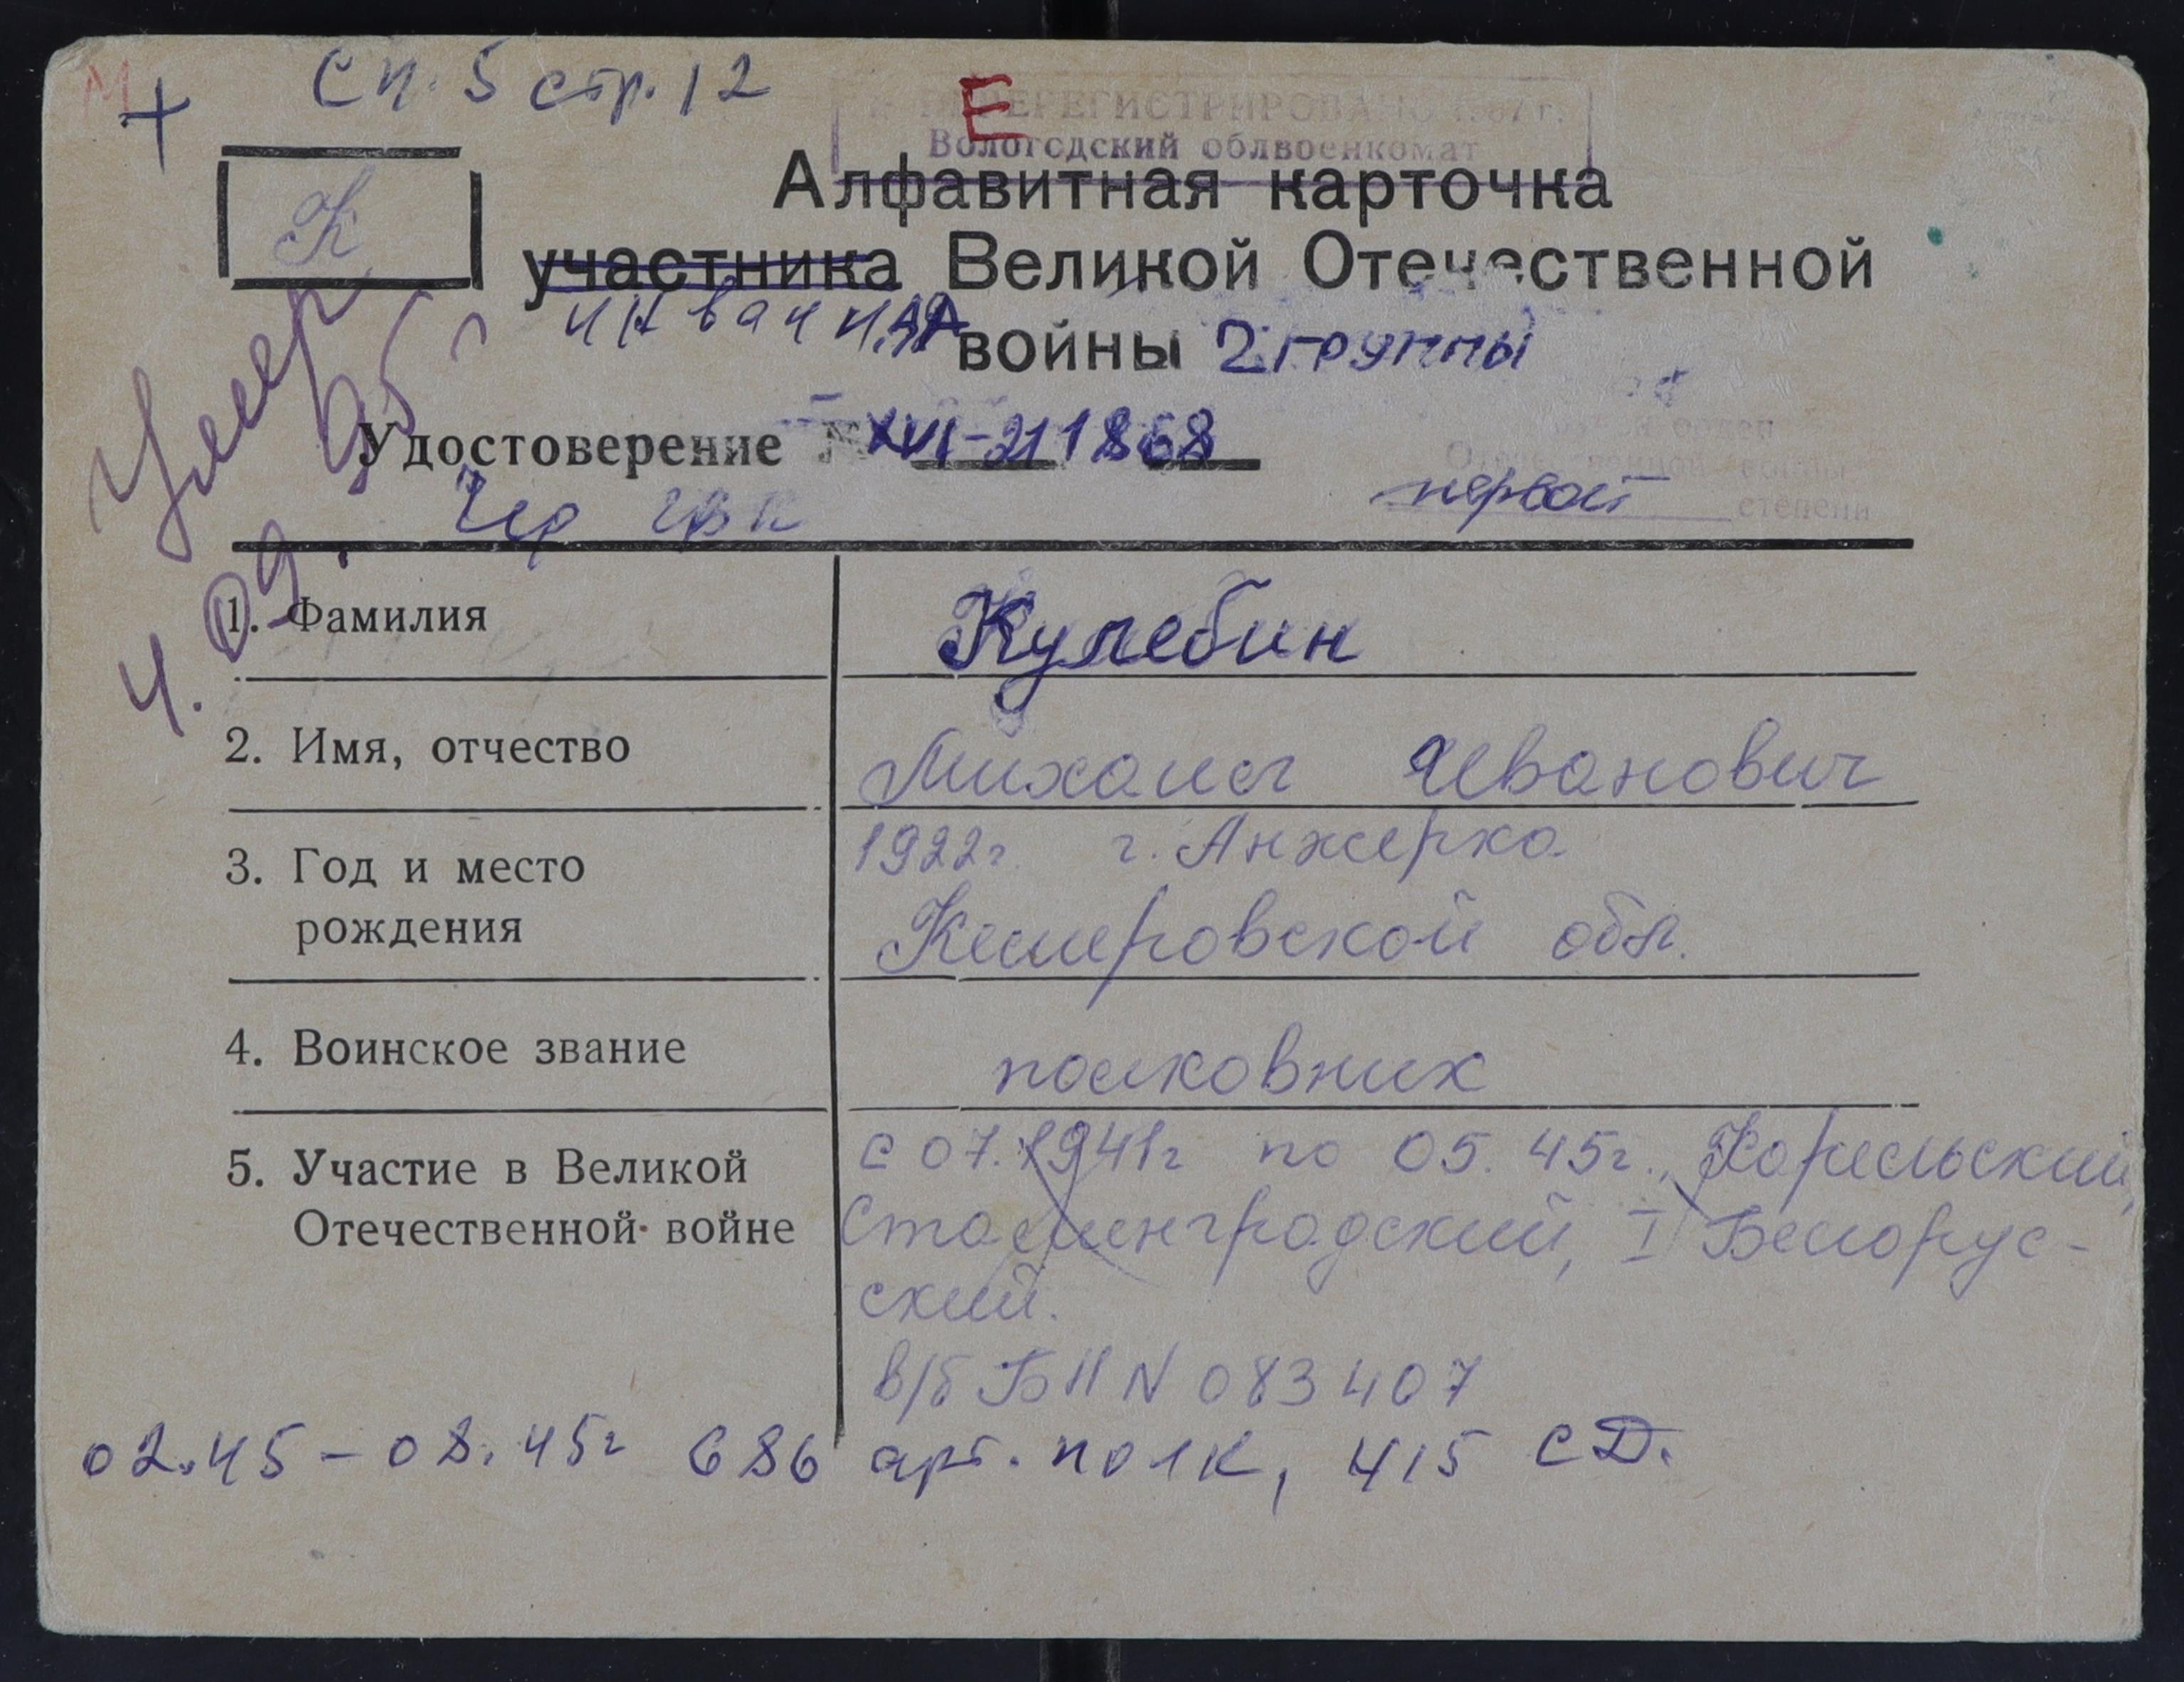 Сп. 5 стр. 12
Е
ПЕРЕРЕГИСТРИРОВАНО
Вологодский облвоенкомат
К
Алфавитная карточка
участника Великой Отечественной
инвалида войны 2 группы
Умер
4.09.95г
Удостоверение № XVI-211868
Чер ГВК
первой степени
1. Фамилия Кулебин
2. Имя, отчество Михаил Иванович
3. Год и место 1922г. г. Анжерка
рождения Кемеровской обл.
4. Воинское звание полковник
5. Участие в Великой с 07.1941г по 05.45г., Карельский,
Отечественной войне Сталинградский, I Белорус-
ский.
в/б БII N 083407
02.45-08.45г 686 арт. полк, 415 СД.